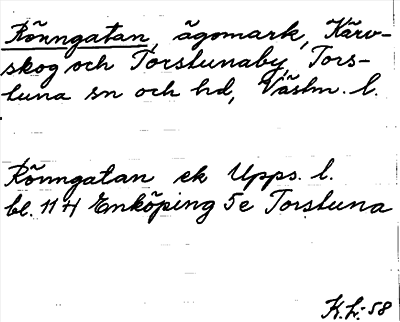 Rönngatan, ägomark, Kärv-
skog och Torstunaby, Tors-
tuna sn och hd, Västm. l.
Rönngatan ek Upps. l.
bl. 11 H Enköping 5e Torstuna
K.L. 58